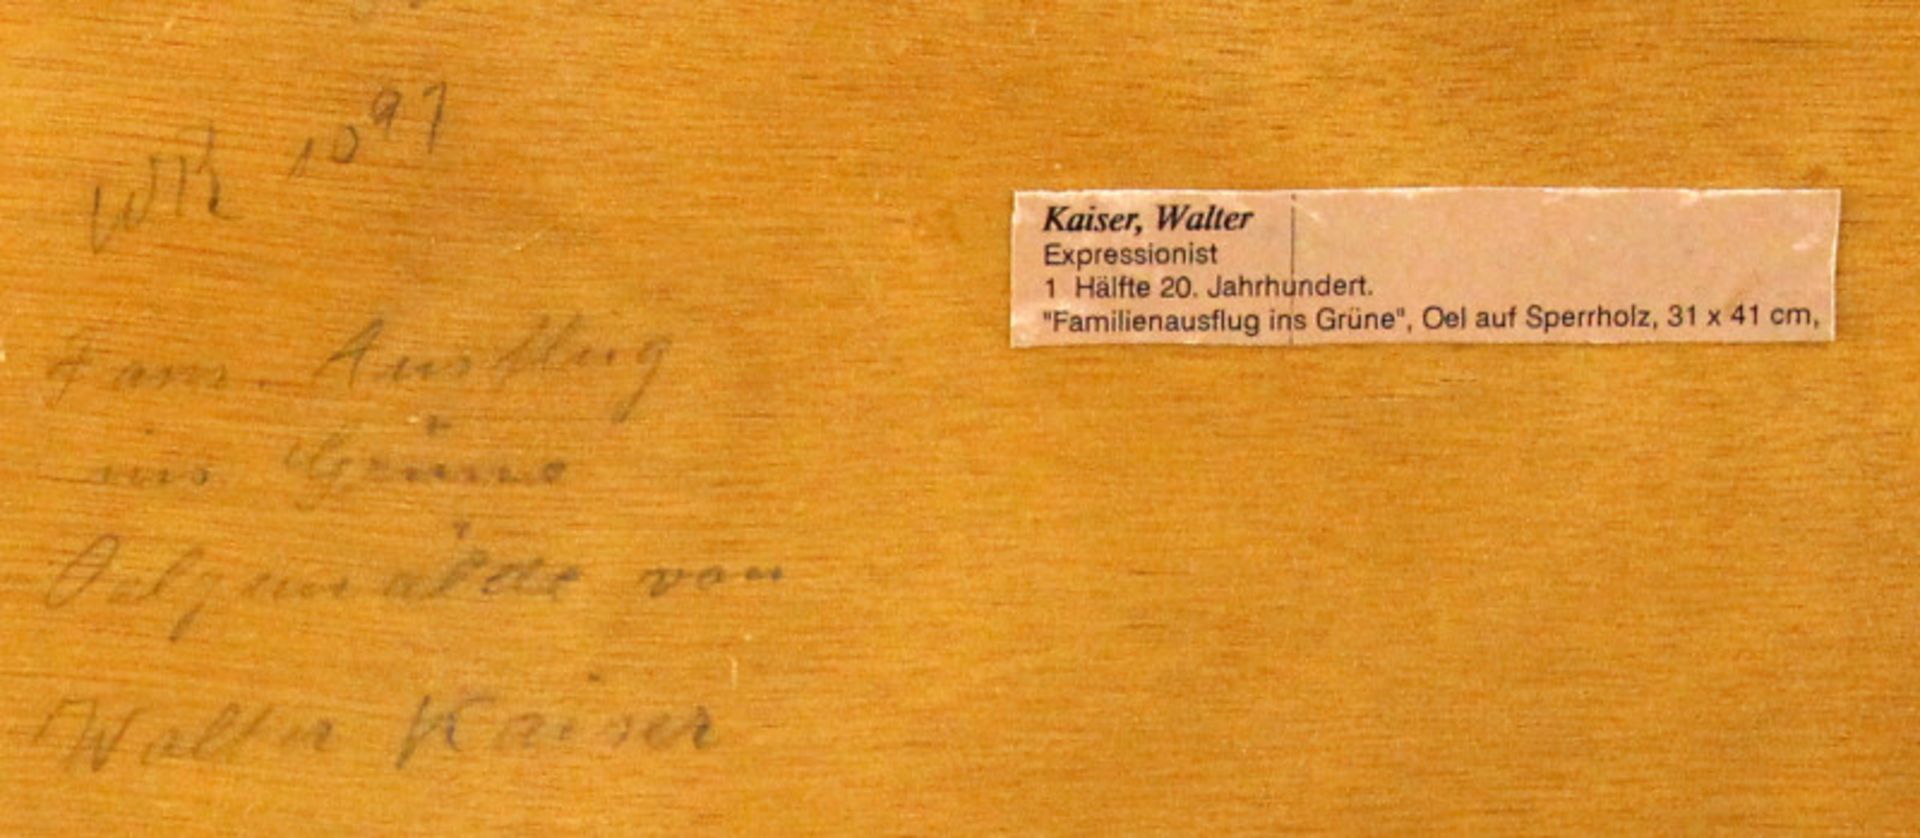 WK 10 97
Fam. Ausflug
ins Grüne
Oelgemälde von
Walter Kaiser
Kaiser, Walter
Expressionist
1 Hälfte 20. Jahrhundert.
"Familienausflug ins Grüne", Oel auf Sperrholz, 31 x 41 cm,